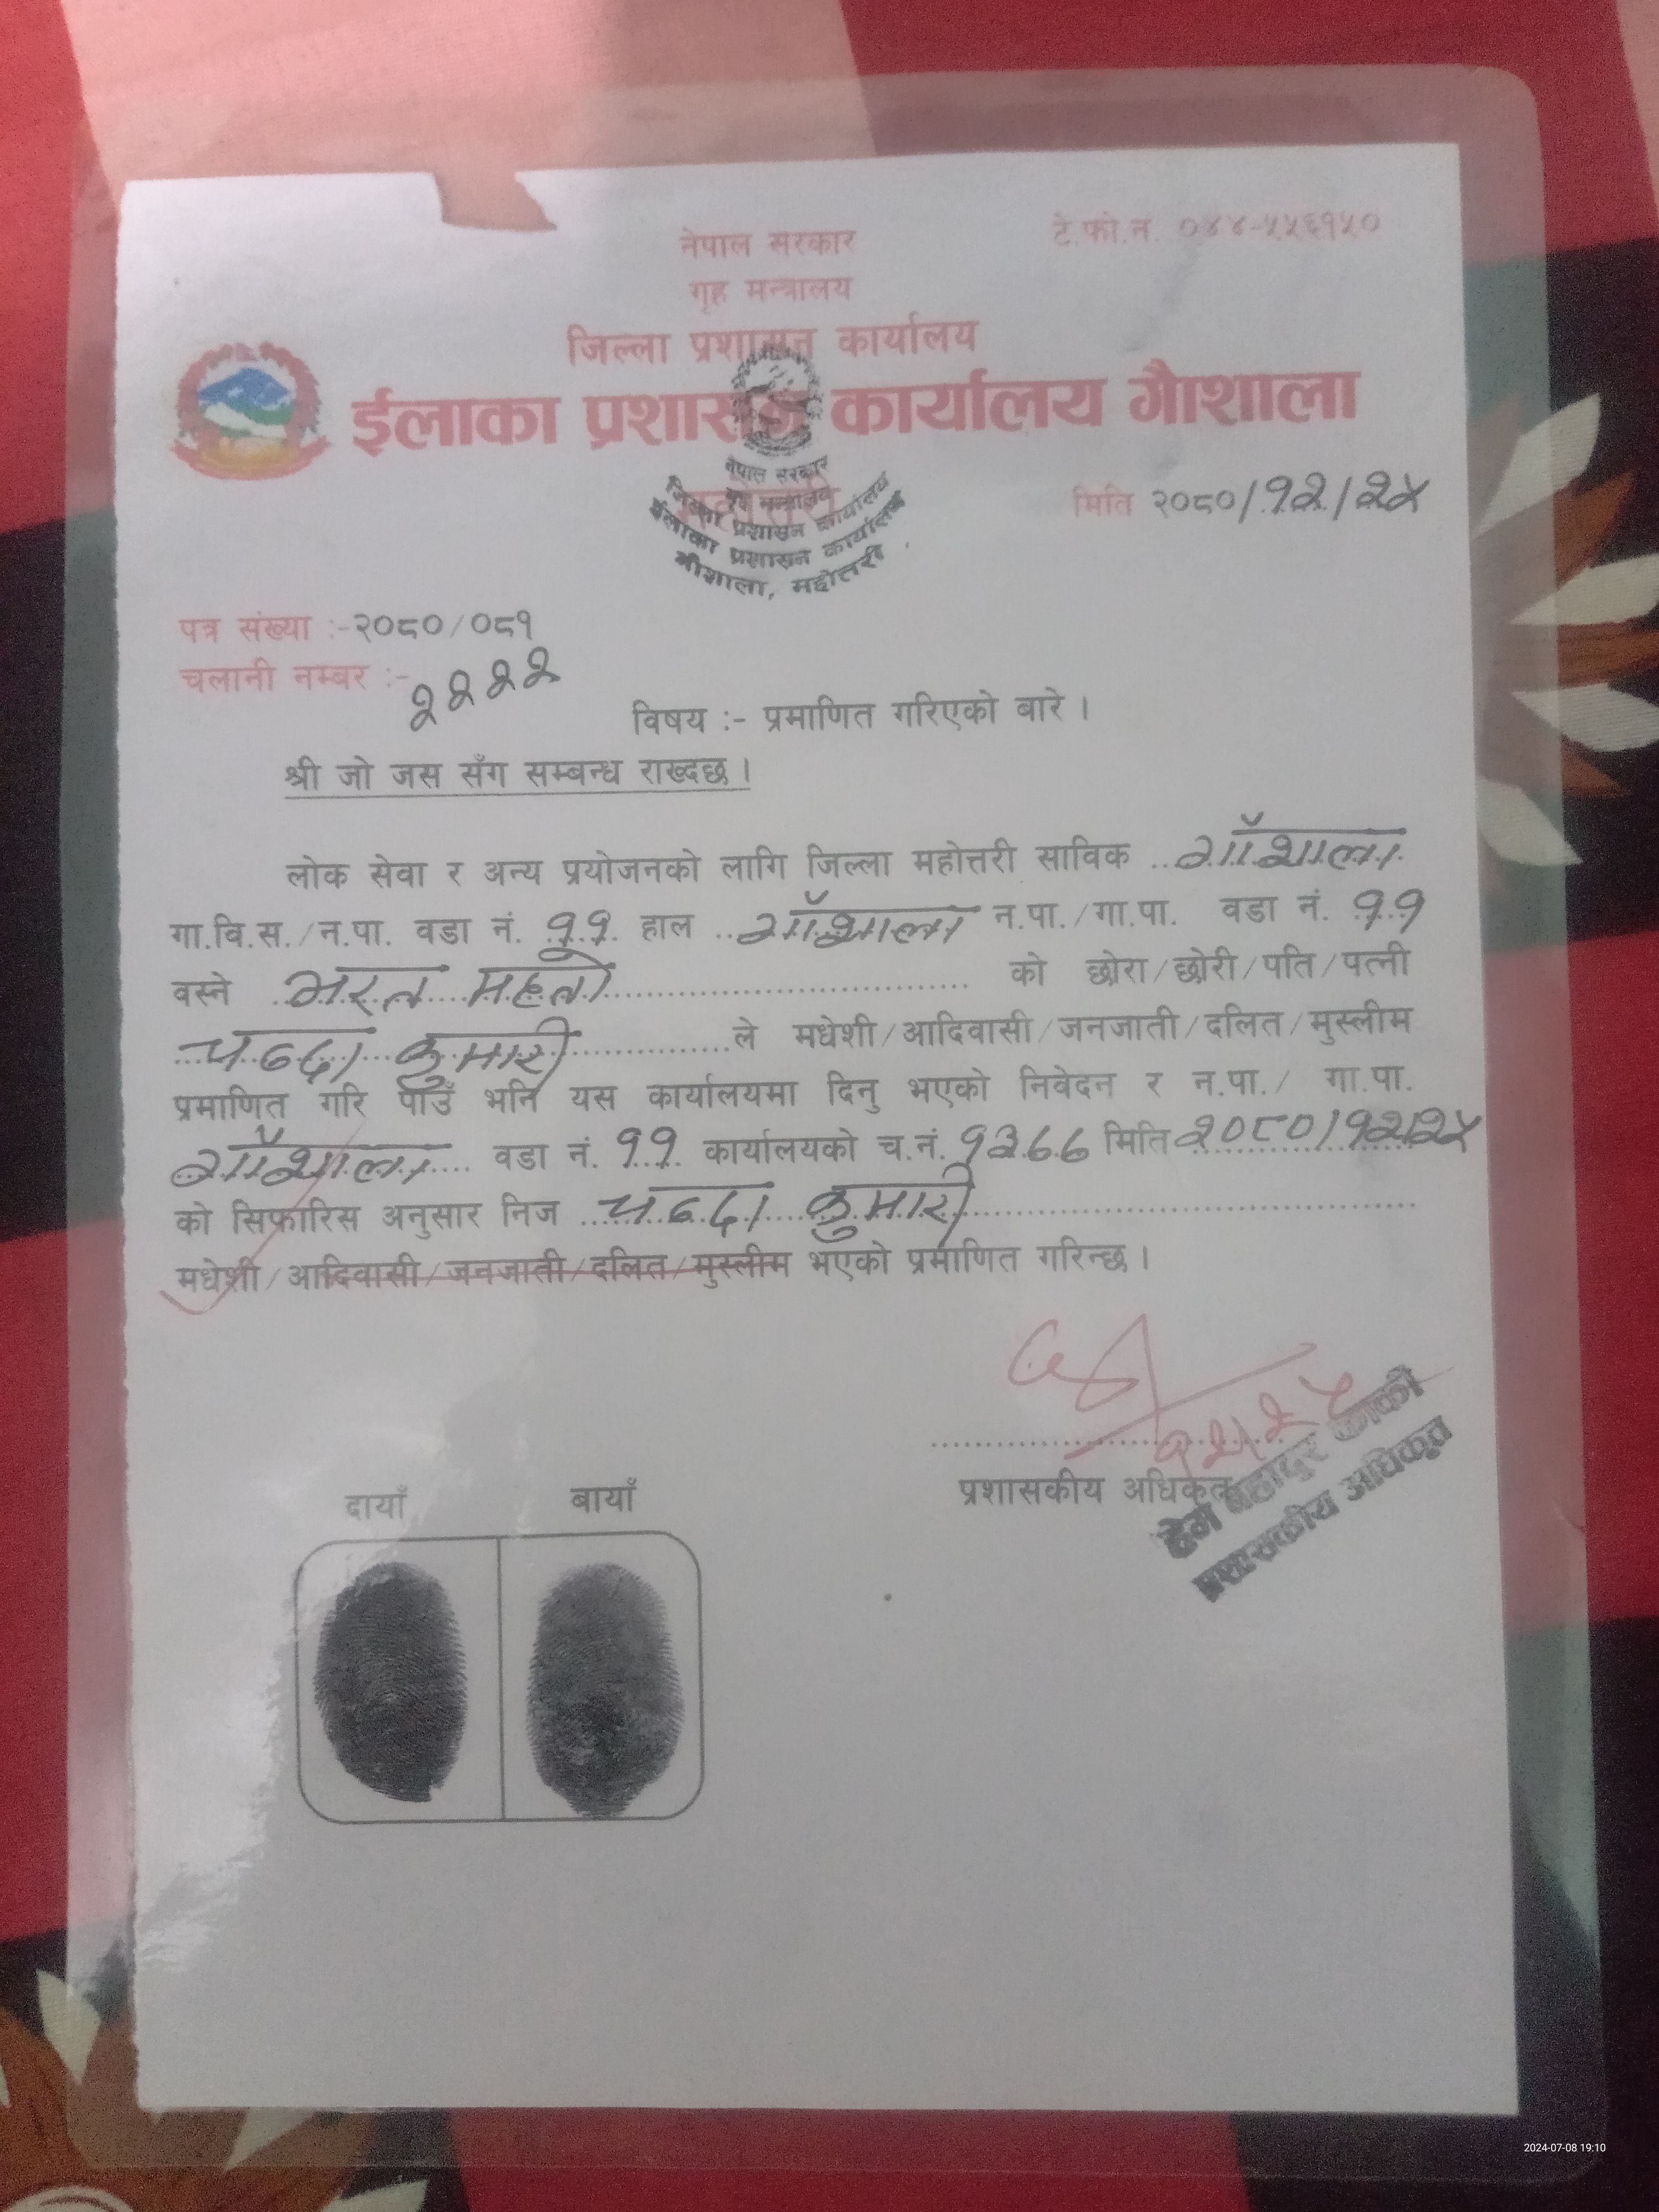 टे.फो.नं. ०४४-५५६१५०
नेपाल सरकार
गृह मन्त्रालय
जिल्ला प्रशासन कार्यालय
ईलाका प्रशासन कार्यालय गौशाला
नेपाल सरकार
गृह मन्त्रालय
जिल्ला प्रशासन कार्यालय
ईलाका प्रशासन कार्यालय
गौशाला, महोत्तरी
मिति २०८०/१२/२५
पत्र संख्या :-२०८०/०८१
चलानी नम्बर :- २२२२
विषय :- प्रमाणित गरिएको बारे ।
श्री जो जस सँग सम्बन्ध राख्दछ ।
लोक सेवा र अन्य प्रयोजनको लागि जिल्ला महोत्तरी साविक गौशाला
गा.वि.स./न.पा. वडा नं. ११ हाल गौशाला न.पा./गा.पा. वडा नं. ११
वस्ने भरत महतो को छोरा/छोरी/पति/पत्नी
चन्दा कुमारी ले मधेशी/आदिवासी/जनजाती/दलित/मुस्लीम
प्रमाणित गरि पाउँ भनि यस कार्यालयमा दिनु भएको निवेदन र न.पा./ गा.पा.
गौशाला वडा नं. ११ कार्यालयको च.नं. १३७७ मिति २०८०/१२/२५
को सिफारिस अनुसार निज चन्दा कुमारी
मधेशी/आदिवासी/जनजाती/दलित/मुस्लीम भएको प्रमाणित गरिन्छ ।
प्रशासकीय अधिकृत
हेम बहादुर कार्की
प्रशासकीय अधिकृत
दायाँ बायाँ
2024-07-08 19:10